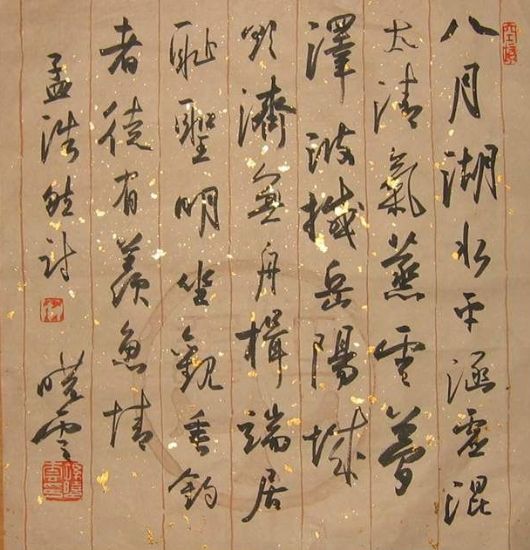 八月湖水平涵虛混
太清氣蒸雲夢
澤波撼岳陽城
欲濟無舟楫端居
耻聖明坐觀垂釣
者徒有羨魚情
孟浩然詩
曉雲